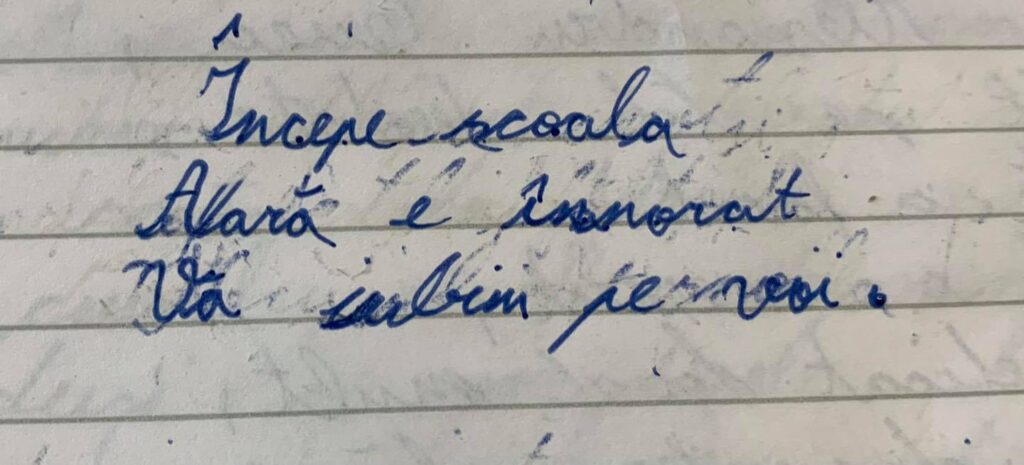 Începe scoala
Afară e înnorat
Vă iubim pe voi.